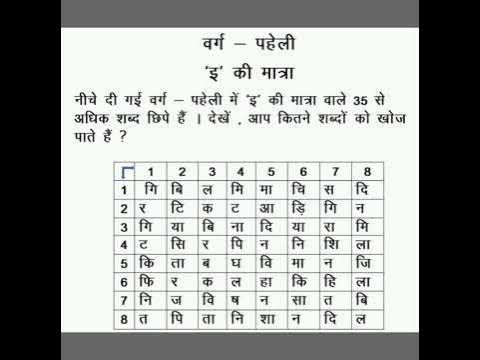 वर्ग – पहेली
‘इ’ की मात्रा
नीचे दी गई वर्ग – पहेली में ‘इ’ की मात्रा वाले 35 से
अधिक शब्द छिपे हैं । देखें , आप कितने शब्दों को खोज
पाते हैं ?
1 2 3 4 5 6 7 8
1 गि बि ल मि मा चि स दि
2 र टि क ट आ ड़ि गि न
3 गि या बि ना दि या रा मि
4 ट सि र पि न नि शि ला
5 कि ता ब घ वि मा न जि
6 फि र क ल हा कि हि ला
7 नि ज वि ष न सा त बि
8 त पि ता नि शा न दि ल